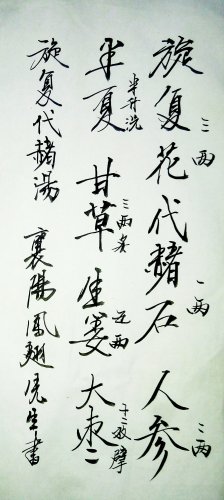 旋复花三两代赭石一两人参二两
半夏半升洗甘草三两炙生姜五两大枣十二枚擘
旋复代赭湯 襄陽鳳翅生書